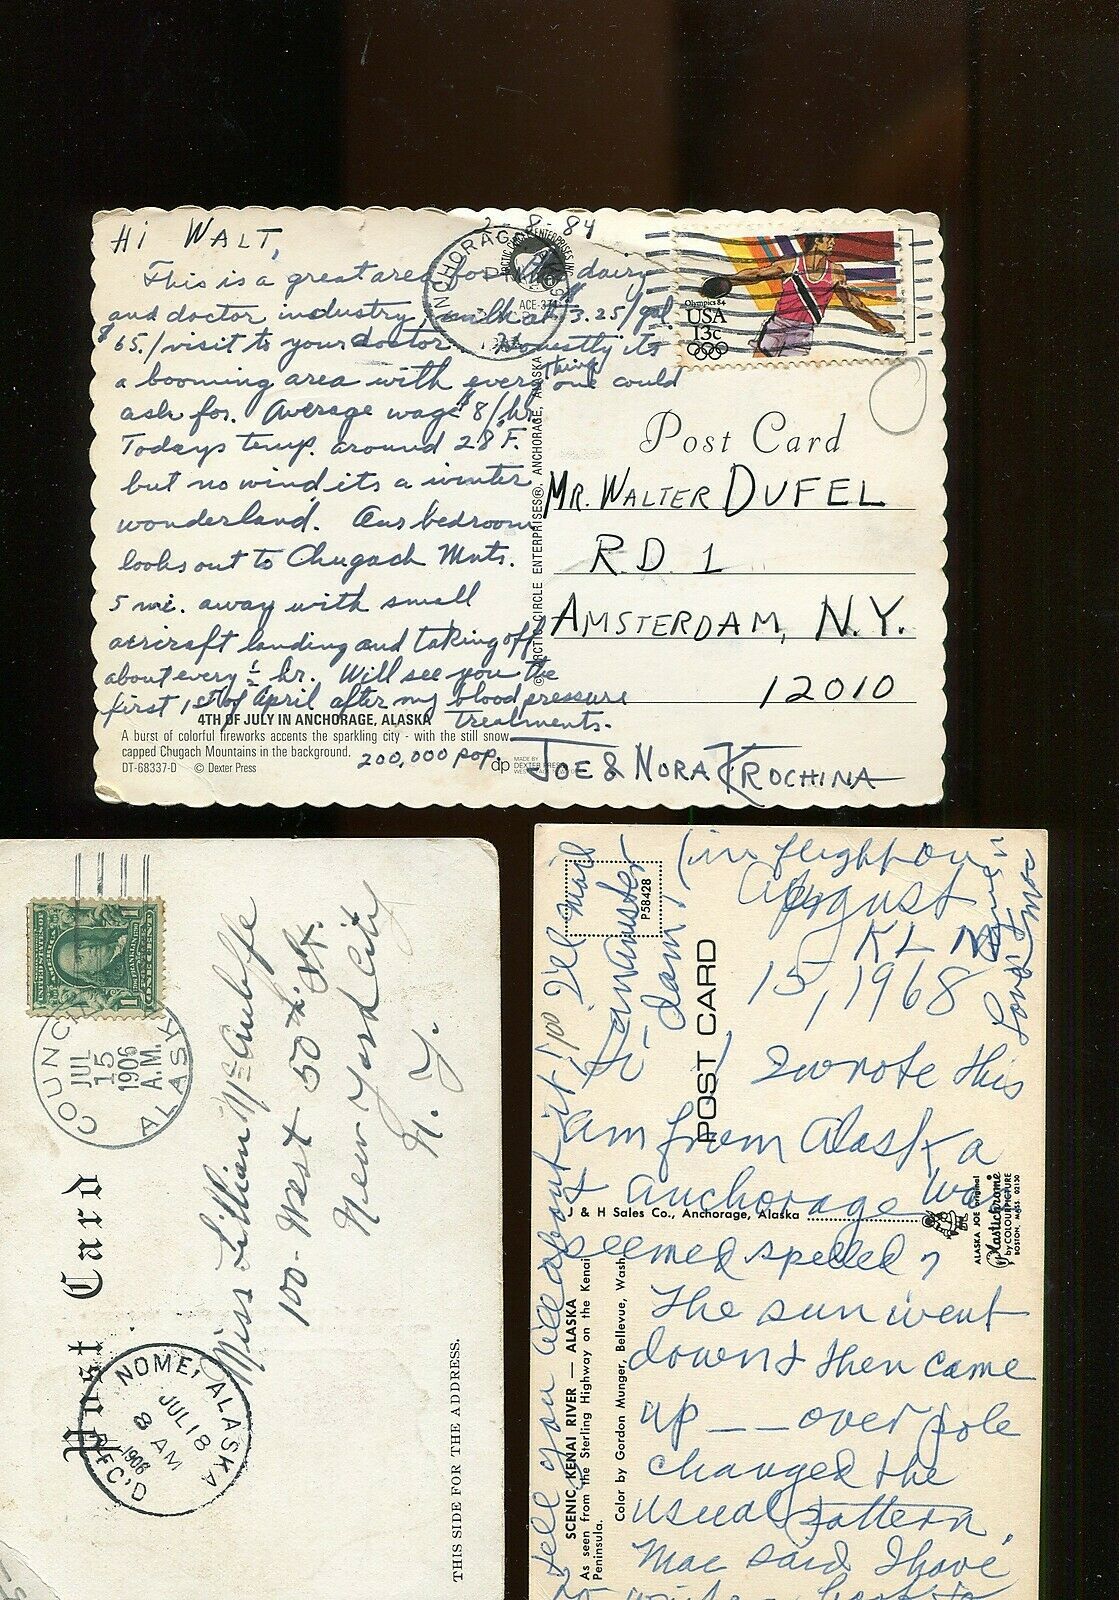 2-8-84
Hi WALT,
This is a great area for the dairy
and doctor industry, milk at $3.25/gal
$65./visit to your doctor. Honestly its
a booming area with everything one could
ask for. Average wage $8/hr.
Todays temp. around 28°F.
but no wind, its a winter
wonderland. Our bedroom
looks out to Chugach Mnts.
5 mi. away with small
aircraft landing and taking off
about every ½ hr. Will see you the
first 1st of April after my blood pressure
treatments.
4TH OF JULY IN ANCHORAGE, ALASKA
A burst of colorful fireworks accents the sparkling city - with the still snow
capped Chugach Mountains in the background.
200,000 pop.
DT-68337-D © Dexter Press
dp MADE BY
DEXTER PRESS
JOE & NORA KROCHINA
ANCHORAGE
ACE-374
© ARCTIC CIRCLE ENTERPRISES®, ANCHORAGE, ALASKA
Olympics 84
USA
13c
Post Card
MR. WALTER DUFEL
RD 1
AMSTERDAM, N.Y.
12010
UNITED STATES OF AMERICA
1 ONE CENT 1
COUNCIL
JUL
15
1906
A.M.
ALASKA
Post Card
NOME, ALASKA
JUL 18
8 AM
1906
REC'D
Miss Lillian McAuliffe
100-West 50th St.
New York City
N. Y.
THIS SIDE FOR THE ADDRESS.
(in flight on
August
KLM
15, 1968
I wrote this
am from Alaska
& Anchorage
seemed spelled
The sun went
down & then came
up -- over pole
changed the
usual pattern.
Mac said I have
Love
Mac
tell you all about it! I'll mail
dam)
P58428
POST CARD
J & H Sales Co., Anchorage, Alaska
ALASKA JOE original
Plastichrome
by COLOURPICTURE
BOSTON, MASS. 02130
SCENIC KENAI RIVER — ALASKA
As seen from the Sterling Highway on the Kenai
Peninsula.
Color by Gordon Munger, Bellevue, Wash.